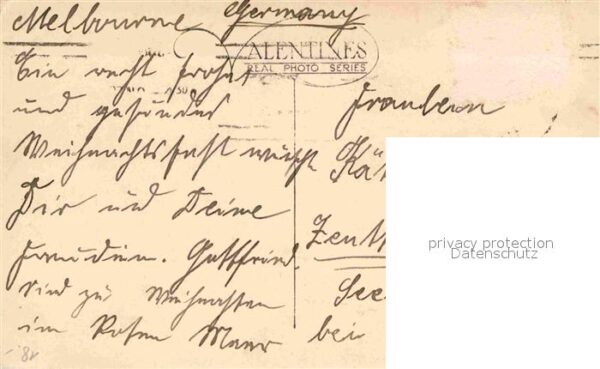 Melbourne Germany
VALENTINES
REAL PHOTO SERIES
Ein recht frohes
und gesundes
Weihnachtsfest wünscht
Dir und Deine
Freundin. Gottfried.
sind zu Weihnachten
im Roten Meer
Fräulein
Kä
Zeuth
See
bei
privacy protection
Datenschutz